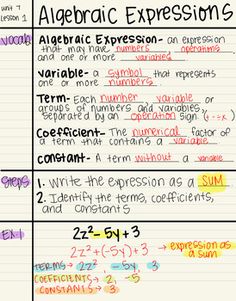 unit 7
Lesson 1
Algebraic Expressions
Vocab
Algebraic Expression- an expression
that may have numbers, operations
and one or more variables
variable- a symbol that represents
one or more numbers.
Term- Each number, variable or
groups of numbers and variables,
separated by an operation sign (+ - ÷ x)
Coefficient- The numerical factor of
a term that contains a variable
constant- A term without a variable
Steps
1. Write the expression as a SUM
2. Identify the terms, coefficients,
and constants
EX
2z²-5y+3
2z²+(-5y)+3 → expression as
a sum
TERMS→ 2z², -5y, 3
COEFFICIENTS→ 2, -5
CONSTANTS→ 3